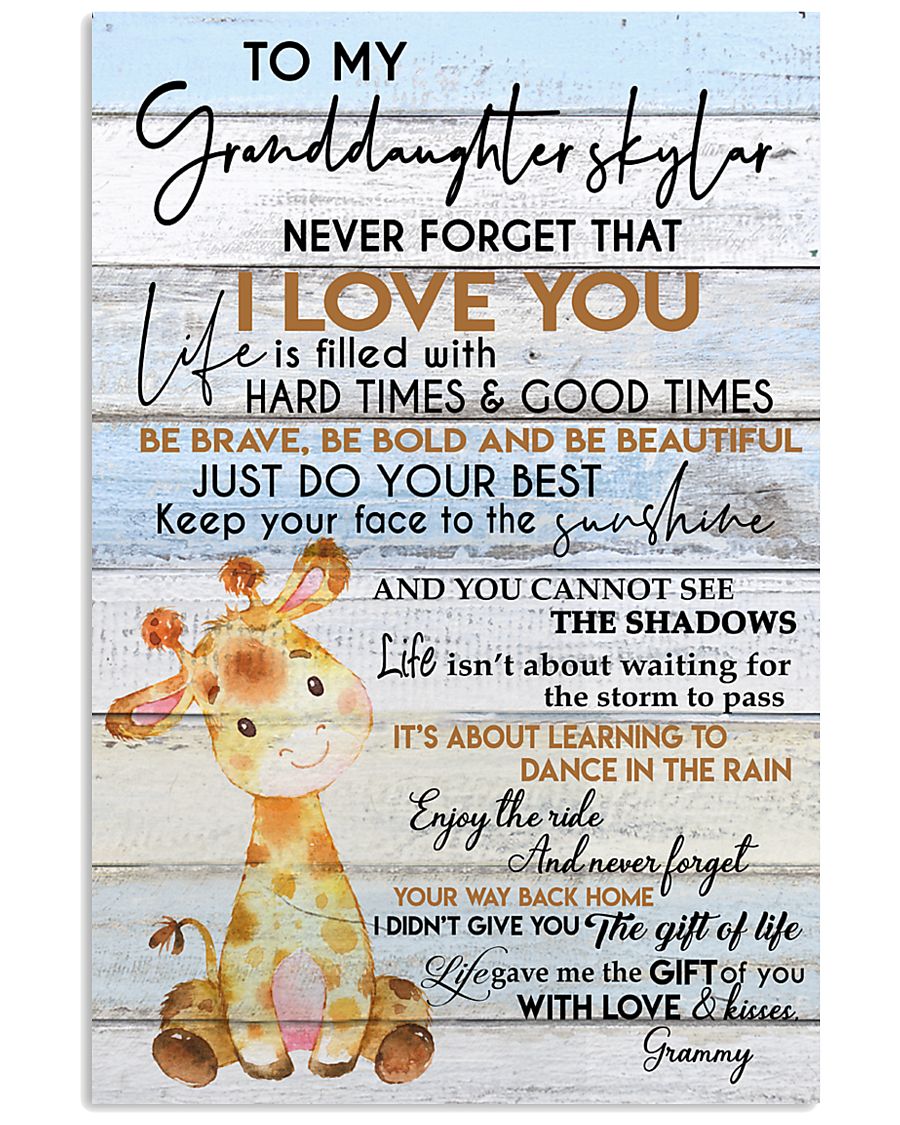 TO MY
Granddaughter skylar
NEVER FORGET THAT
I LOVE YOU
Life is filled with
HARD TIMES & GOOD TIMES
BE BRAVE, BE BOLD AND BE BEAUTIFUL
JUST DO YOUR BEST
Keep your face to the sunshine
AND YOU CANNOT SEE
THE SHADOWS
Life isn't about waiting for
the storm to pass
IT'S ABOUT LEARNING TO
DANCE IN THE RAIN
Enjoy the ride
And never forget
YOUR WAY BACK HOME
I DIDN'T GIVE YOU The gift of life
Life gave me the GIFT of you
WITH LOVE & kisses,
Grammy